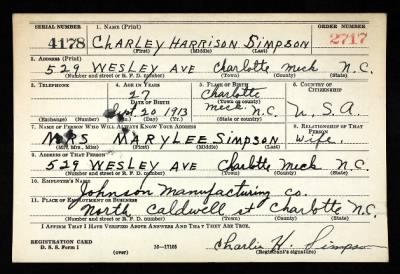 SERIAL NUMBER 1. NAME (Print) ORDER NUMBER
4178 CHARLEY HARRISON SIMPSON 2717
(First) (Middle) (Last)
2. ADDRESS (Print)
529 WESLEY AVE Charlotte Meck N.C.
(Number and street or R. F. D. number) (Town) (County) (State)
3. TELEPHONE 4. AGE IN YEARS 5. PLACE OF BIRTH 6. COUNTRY OF CITIZENSHIP
27 Charlotte
DATE OF BIRTH (Town or county)
Sept. 20 1913 Meck. N.C. U.S.A.
(Exchange) (Number) (Mo.) (Day) (Yr.) (State or country)
7. NAME OF PERSON WHO WILL ALWAYS KNOW YOUR ADDRESS 8. RELATIONSHIP OF THAT PERSON
MRS MARY LEE SIMPSON Wife.
(Mr., Mrs., Miss) (First) (Middle) (Last)
9. ADDRESS OF THAT PERSON
529 WESLEY AVE Charlotte Meck N.C.
(Number and street or R. F. D. number) (Town) (County) (State)
10. EMPLOYER'S NAME
Johnson Manufacturing Co.
11. PLACE OF EMPLOYMENT OR BUSINESS
North Caldwell st Charlotte N.C.
(Number and street or R. F. D. number) (Town) (County) (State)
I AFFIRM THAT I HAVE VERIFIED ABOVE ANSWERS AND THAT THEY ARE TRUE.
REGISTRATION CARD
D. S. S. Form 1 (over) 16—17105 Charlie H. Simpson
(Registrant's signature)